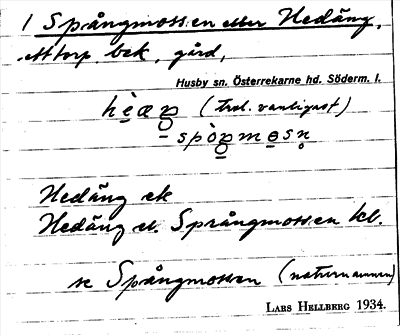 1 Språngmossen eller Hedäng,
ett torp, bek, gård,
Husby sn. Österrekarne hd. Söderm. l.
hèæŋ (trol. vanligast)
- spòŋmosn̥
Hedäng ek
Hedäng el. Språngmossen kbl.
se Språngmossen (naturnamnen)
LARS HELLBERG 1934.